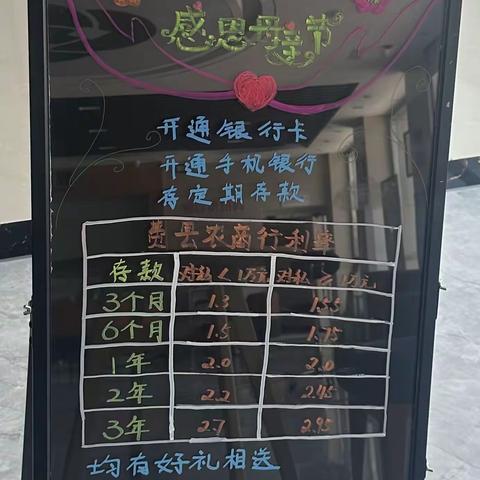 感恩母亲节
开通银行卡
开通手机银行
存定期存款
费县农商行利率
存款 对私<1万元 对私≥1万元
3个月 1.3 1.55
6个月 1.5 1.75
1年 2.0 2.0
2年 2.2 2.45
3年 2.7 2.95
均有好礼相送